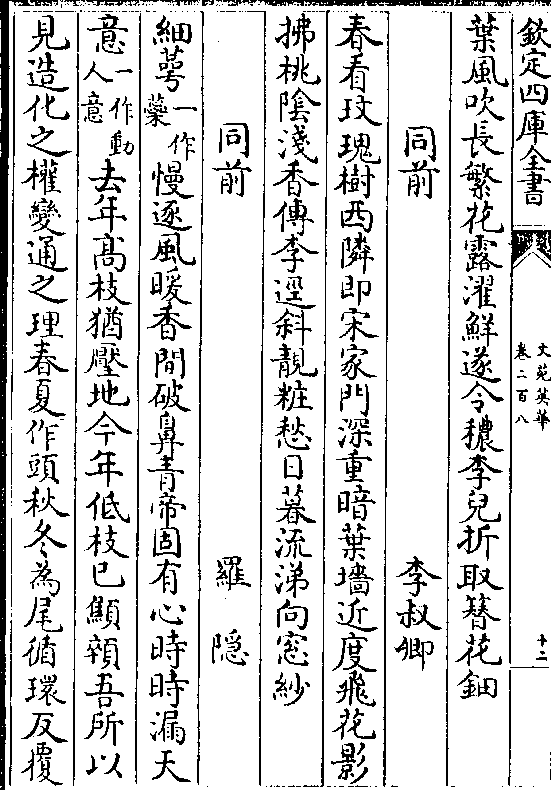 欽定四庫全書
文苑英華
卷二百八
十二
葉風吹長繁花露濯鮮遂令穠李兒折取簪花鈿
同前 李叔卿
春看玫瑰樹西隣即宋家門深重暗葉墻近度飛花影
拂桃陰淺香傳李逕斜靚粧愁日暮流涕向窓紗
同前 羅隱
細萼一作蘂慢逐風暖香間破鼻青帝固有心時時漏天
意一作動人意去年髙枝猶壓地今年低枝已顦顇吾所以
見造化之權變通之理春夏作頭秋冬為尾循環反覆